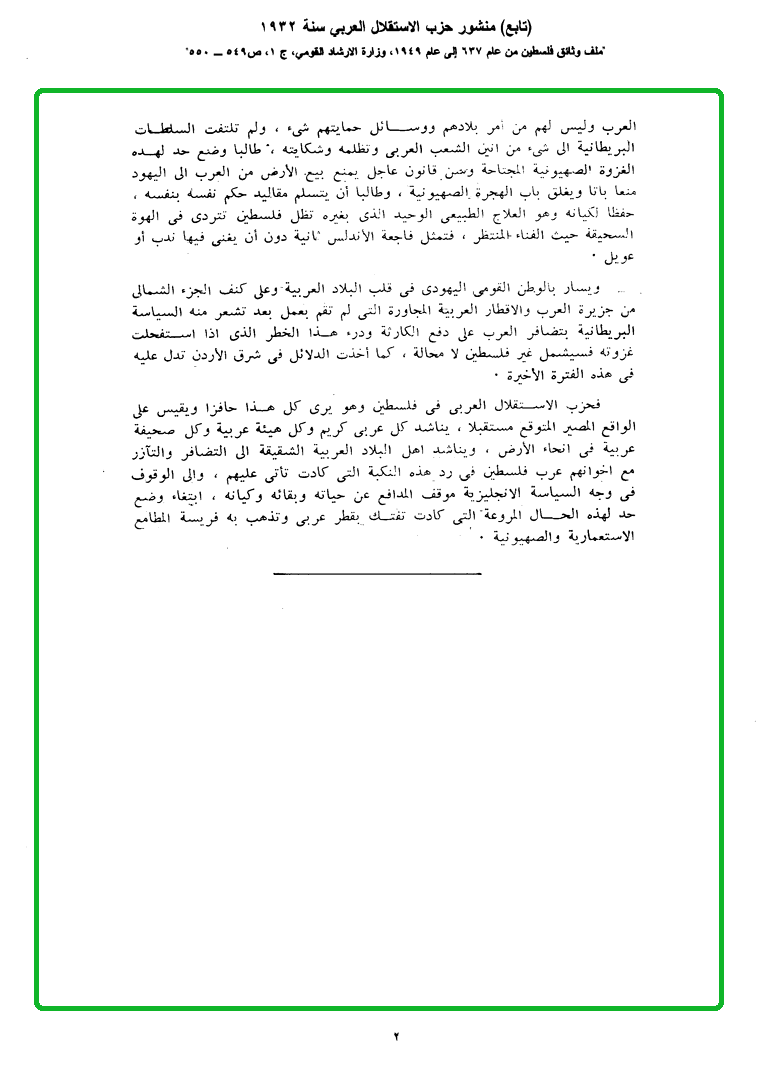 (تابع) منشور حزب الاستقلال العربي سنة ١٩٣٢
"ملف وثائق فلسطين من عام ٦٣٧ إلى عام ١٩٤٩، وزارة الارشاد القومي، ج ١، ص٥٤٩ ــ ٥٥٠"
العرب وليس لهم من أمر بلادهم ووســـائل حمايتهم شىء ، ولم تلتفت السلطـات
البريطانية الى شىء من انين الشعب العربى وتظلمه وشكايته ، طالبا وضع حد لهـذه
الغزوة الصهيونية المجتاحة وسن قانون عاجل يمنع بيع الأرض من العرب الى اليهود
منعا باتا ويغلق باب الهجرة الصهيونية ، وطالبا أن يتسلم مقاليد حكم نفسه بنفسه ،
حفظا لكيانه وهو العلاج الطبيعى الوحيد الذى بغيره تظل فلسطين تتردى فى الهوة
السحيقة حيث الفناء المنتظر ، فتمثل فاجعة الأندلس ثانية دون أن يغنى فيها ندب أو
عويل ٠
ويسار بالوطن القومى اليهودى فى قلب البلاد العربية وعلى كنف الجزء الشمالى
من جزيرة العرب والاقطار العربية المجاورة التى لم تقم بعمل بعد تشعر منه السياسة
البريطانية بتضافر العرب على دفع الكارثة ودرء هـــذا الخطر الذى اذا استـفحلت
غزوته فسيشمل غير فلسطين لا محالة ، كما أخذت الدلائل فى شرق الأردن تدل عليه
فى هذه الفترة الأخيرة ٠
فحزب الاســتقلال العربى فى فلسطين وهو يرى كل هــذا حافزا ويقيس على
الواقع المصير المتوقع مستقبلا ، يناشد كل عربى كريم وكل هيئة عربية وكل صحيفة
عربية فى انحاء الأرض ، ويناشد اهل البلاد العربية الشقيقة الى التضافر والتآزر
مع اخوانهم عرب فلسطين فى رد هذه النكبة التى كادت تأتى عليهم ، والى الوقوف
فى وجه السياسة الانجليزية موقف المدافع عن حياته وبقائه وكيانه ، ابتغاء وضع
حد لهذه الحـــال المروعة التى كادت تفتــك بقطر عربى وتذهب به فريسة المطامع
الاستعمارية والصهيونية ٠
٢